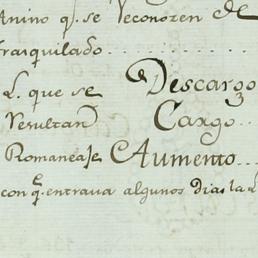 Anino q.e se Veconozen de
Trasquilado..........
L. que se Descargo
Resultan Cargo...
Romaneaje Aumento...
con q.e entrava algunos dias la L